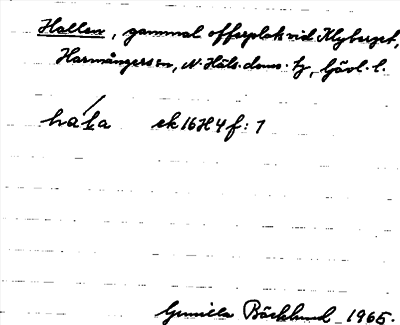 Hallen, gammal offerplats vid Klyberget,
Harmångers sn, N. Häls. doms. tg, Gävl. l.
hałła ek 16H4f:1
Gunilla Bäcklund 1965.